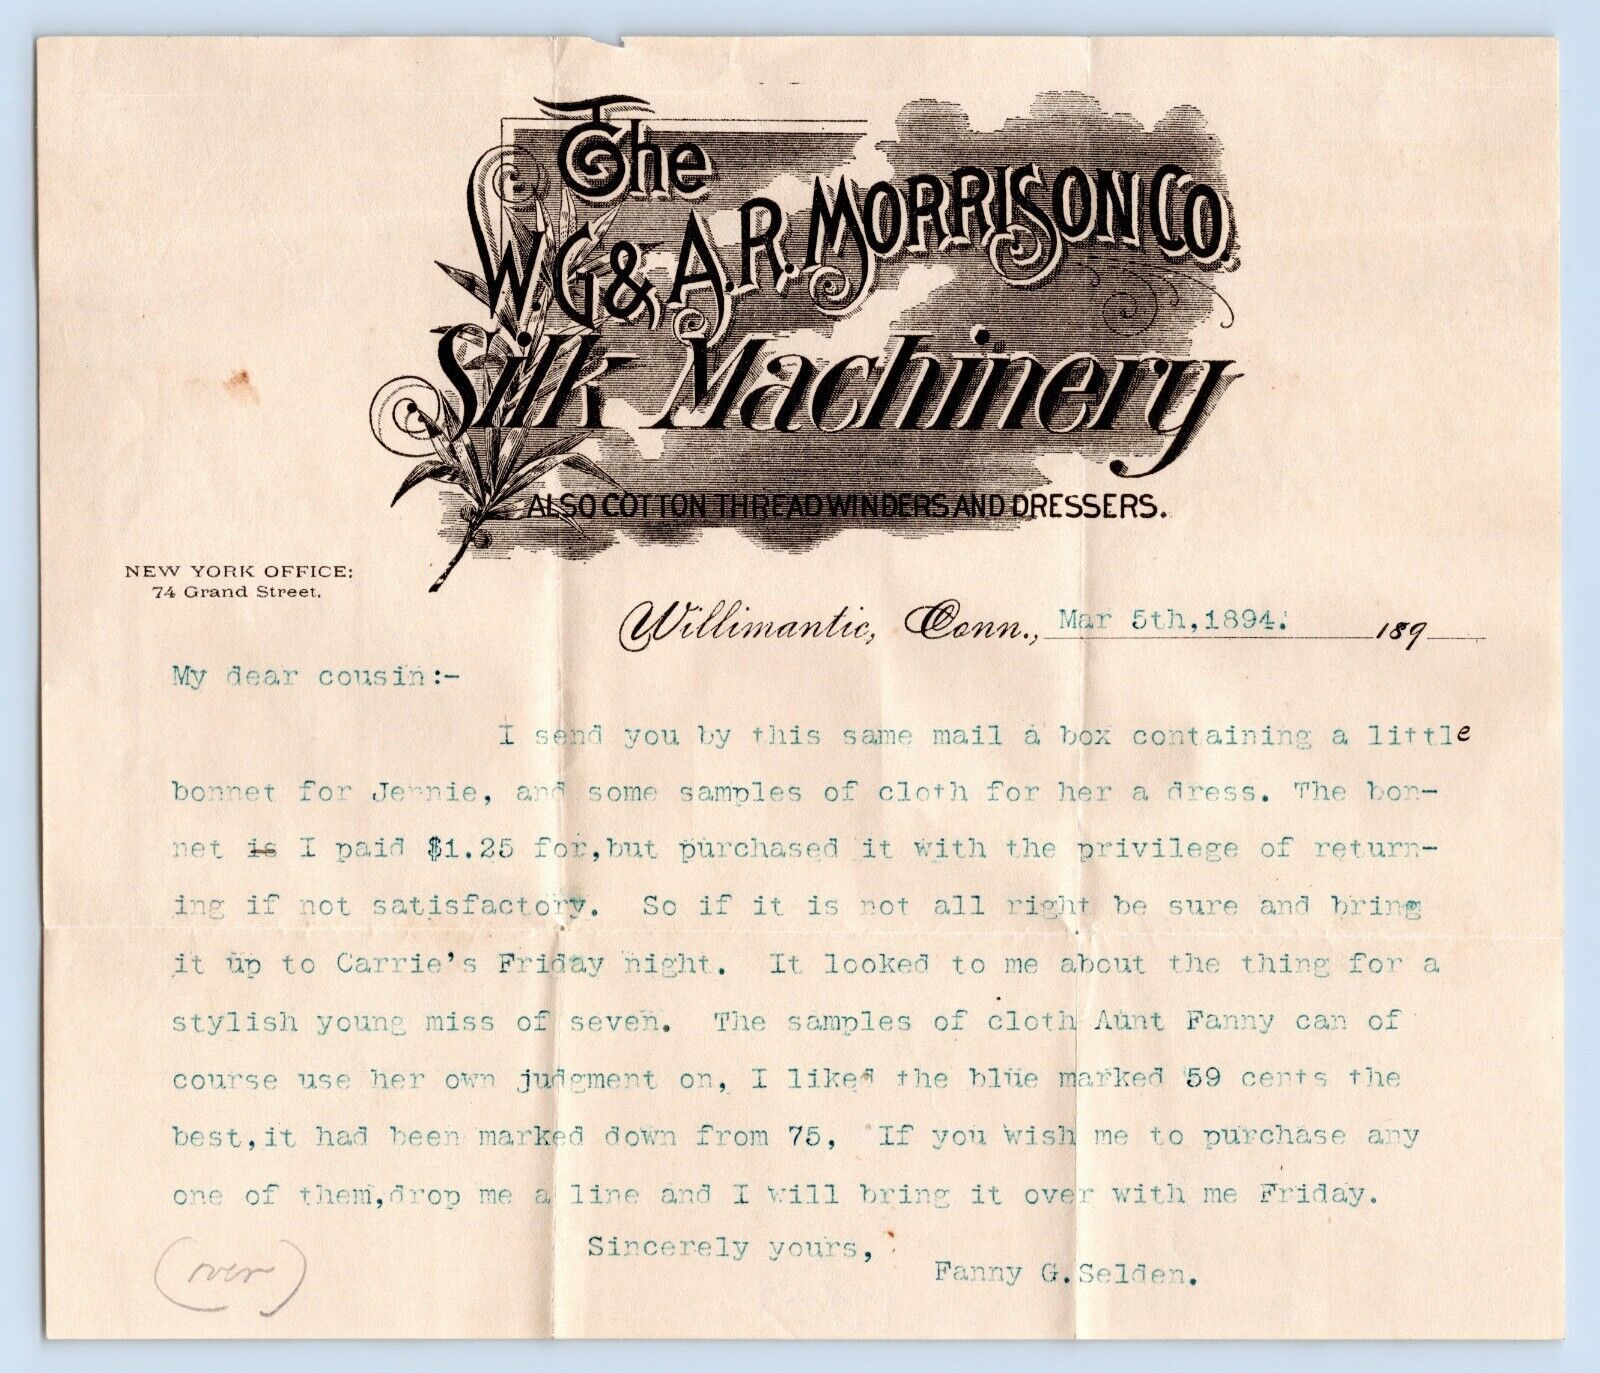 The
W.G. & A.R. MORRISON CO.
Silk Machinery
ALSO COTTON THREAD WINDERS AND DRESSERS.
NEW YORK OFFICE:
74 Grand Street.
Willimantic, Conn., Mar 5th,1894. 189
My dear cousin:-
I send you by this same mail a box containing a little
bonnet for Jennie, and some samples of cloth for her a dress. The bon-
net is I paid $1.25 for,but purchased it with the privilege of return-
ing if not satisfactory. So if it is not all right be sure and bring
it up to Carrie's Friday night. It looked to me about the thing for a
stylish young miss of seven. The samples of cloth Aunt Fanny can of
course use her own judgment on, I liked the blue marked 59 cents the
best,it had been marked down from 75, If you wish me to purchase any
one of them,drop me a line and I will bring it over with me Friday.
Sincerely yours,
Fanny G.Selden.
(over)